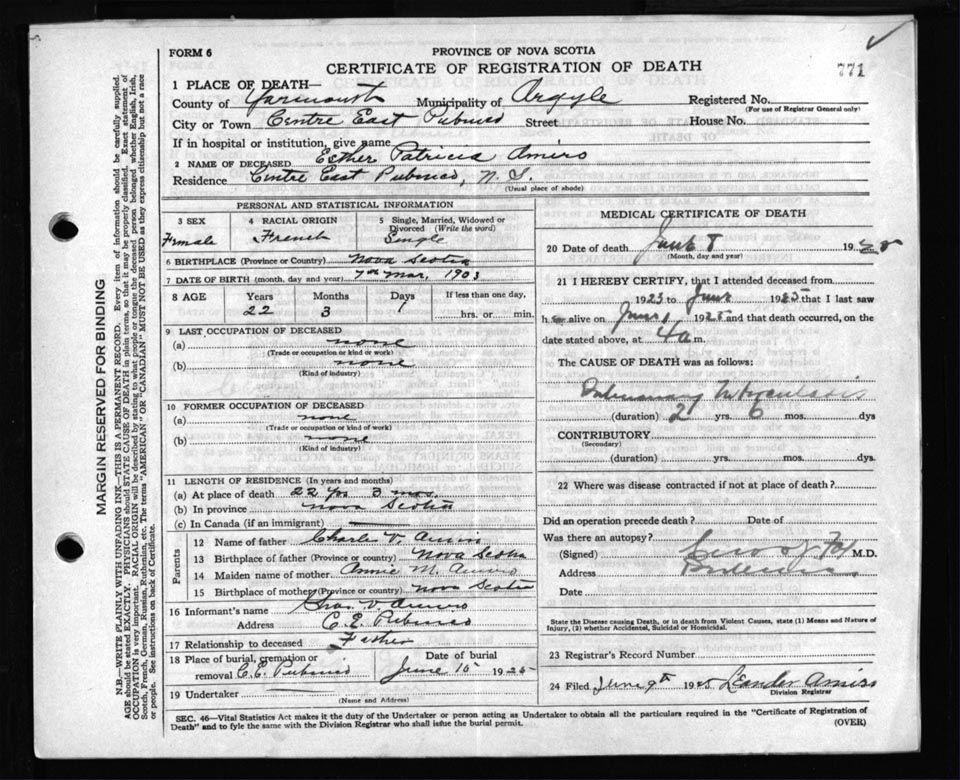 FORM 6
PROVINCE OF NOVA SCOTIA
CERTIFICATE OF REGISTRATION OF DEATH
771
1 PLACE OF DEATH—
County of Yarmouth Municipality of Argyle Registered No.
(For use of Registrar General only)
City or Town Centre East Pubnico Street House No.
If in hospital or institution, give name
2 NAME OF DECEASED Esther Patricia Amiro
Residence Centre East Pubnico, N.S.
(Usual place of abode)
PERSONAL AND STATISTICAL INFORMATION
3 SEX 4 RACIAL ORIGIN 5 Single, Married, Widowed or Divorced (Write the word)
Female French Single
6 BIRTHPLACE (Province or Country) Nova Scotia
7 DATE OF BIRTH (month, day and year) 7th Mar, 1903
8 AGE Years Months Days If less than one day,
22 3 hrs. or min.
9 LAST OCCUPATION OF DECEASED
(a) none
(Trade or occupation or kind or work)
(b) none
(Kind of industry)
10 FORMER OCCUPATION OF DECEASED
(a) none
(Trade or occupation or kind of work)
(b) none
(Kind of industry)
11 LENGTH OF RESIDENCE (In years and months)
(a) At place of death 22 yrs 3 mos.
(b) In province Nova Scotia
(c) In Canada (if an immigrant)
Parents
12 Name of father Charle V. Amiro
13 Birthplace of father (Province or Country) Nova Scotia
14 Maiden name of mother Annie M. Amiro
15 Birthplace of mother (Province or Country) Nova Scotia
16 Informant's name Chas. V. Amiro
Address C.E. Pubnico
17 Relationship to deceased Father
18 Place of burial, cremation or removal C.E. Pubnico Date of burial June 10 1925
19 Undertaker
(Name and Address)
MEDICAL CERTIFICATE OF DEATH
20 Date of death June 192
(Month, day and year)
21 I HEREBY CERTIFY, that I attended deceased from
1923 to June 1925 that I last saw
h alive on June 1 1925 and that death occurred, on the
date stated above, at 4 a m.
The CAUSE OF DEATH was as follows:
Pulmonary Tuberculosis
(duration) 2 yrs. 6 mos. dys
CONTRIBUTORY
(Secondary)
(duration) yrs. mos. dys.
22 Where was disease contracted if not at place of death?
Did an operation precede death? Date of
Was there an autopsy?
(Signed) M.D.
Address Pubnico
Date
State the Disease causing Death, or in death from Violent Causes, state (1) Means and Nature of Injury, (2) whether Accidental, Suicidal or Homicidal.
23 Registrar's Record Number
24 Filed June 9th 1925 Leander Amiro
Division Registrar
SEC. 46—Vital Statistics Act makes it the duty of the Undertaker or person acting as Undertaker to obtain all the particulars required in the "Certificate of Registration of
Death" and to file the same with the Division Registrar who shall issue the burial permit.
(OVER)
MARGIN RESERVED FOR BINDING
N.B.—WRITE PLAINLY WITH UNFADING INK—THIS IS A PERMANENT RECORD. Every item of information should be carefully supplied.
AGE should be stated EXACTLY. PHYSICIANS should STATE CAUSE OF DEATH in plain terms, so that it may be properly classified. Exact statement of
OCCUPATION is very important. RACIAL ORIGIN will be described by stating to what people or tongue the deceased person belonged whether English, Irish,
Scotch, French, German, Russian, Ruthenian, etc. The terms "AMERICAN" OR "CANADIAN" MUST NOT BE USED as they express citizenship but not a race
or people. See instructions on back of Certificate.